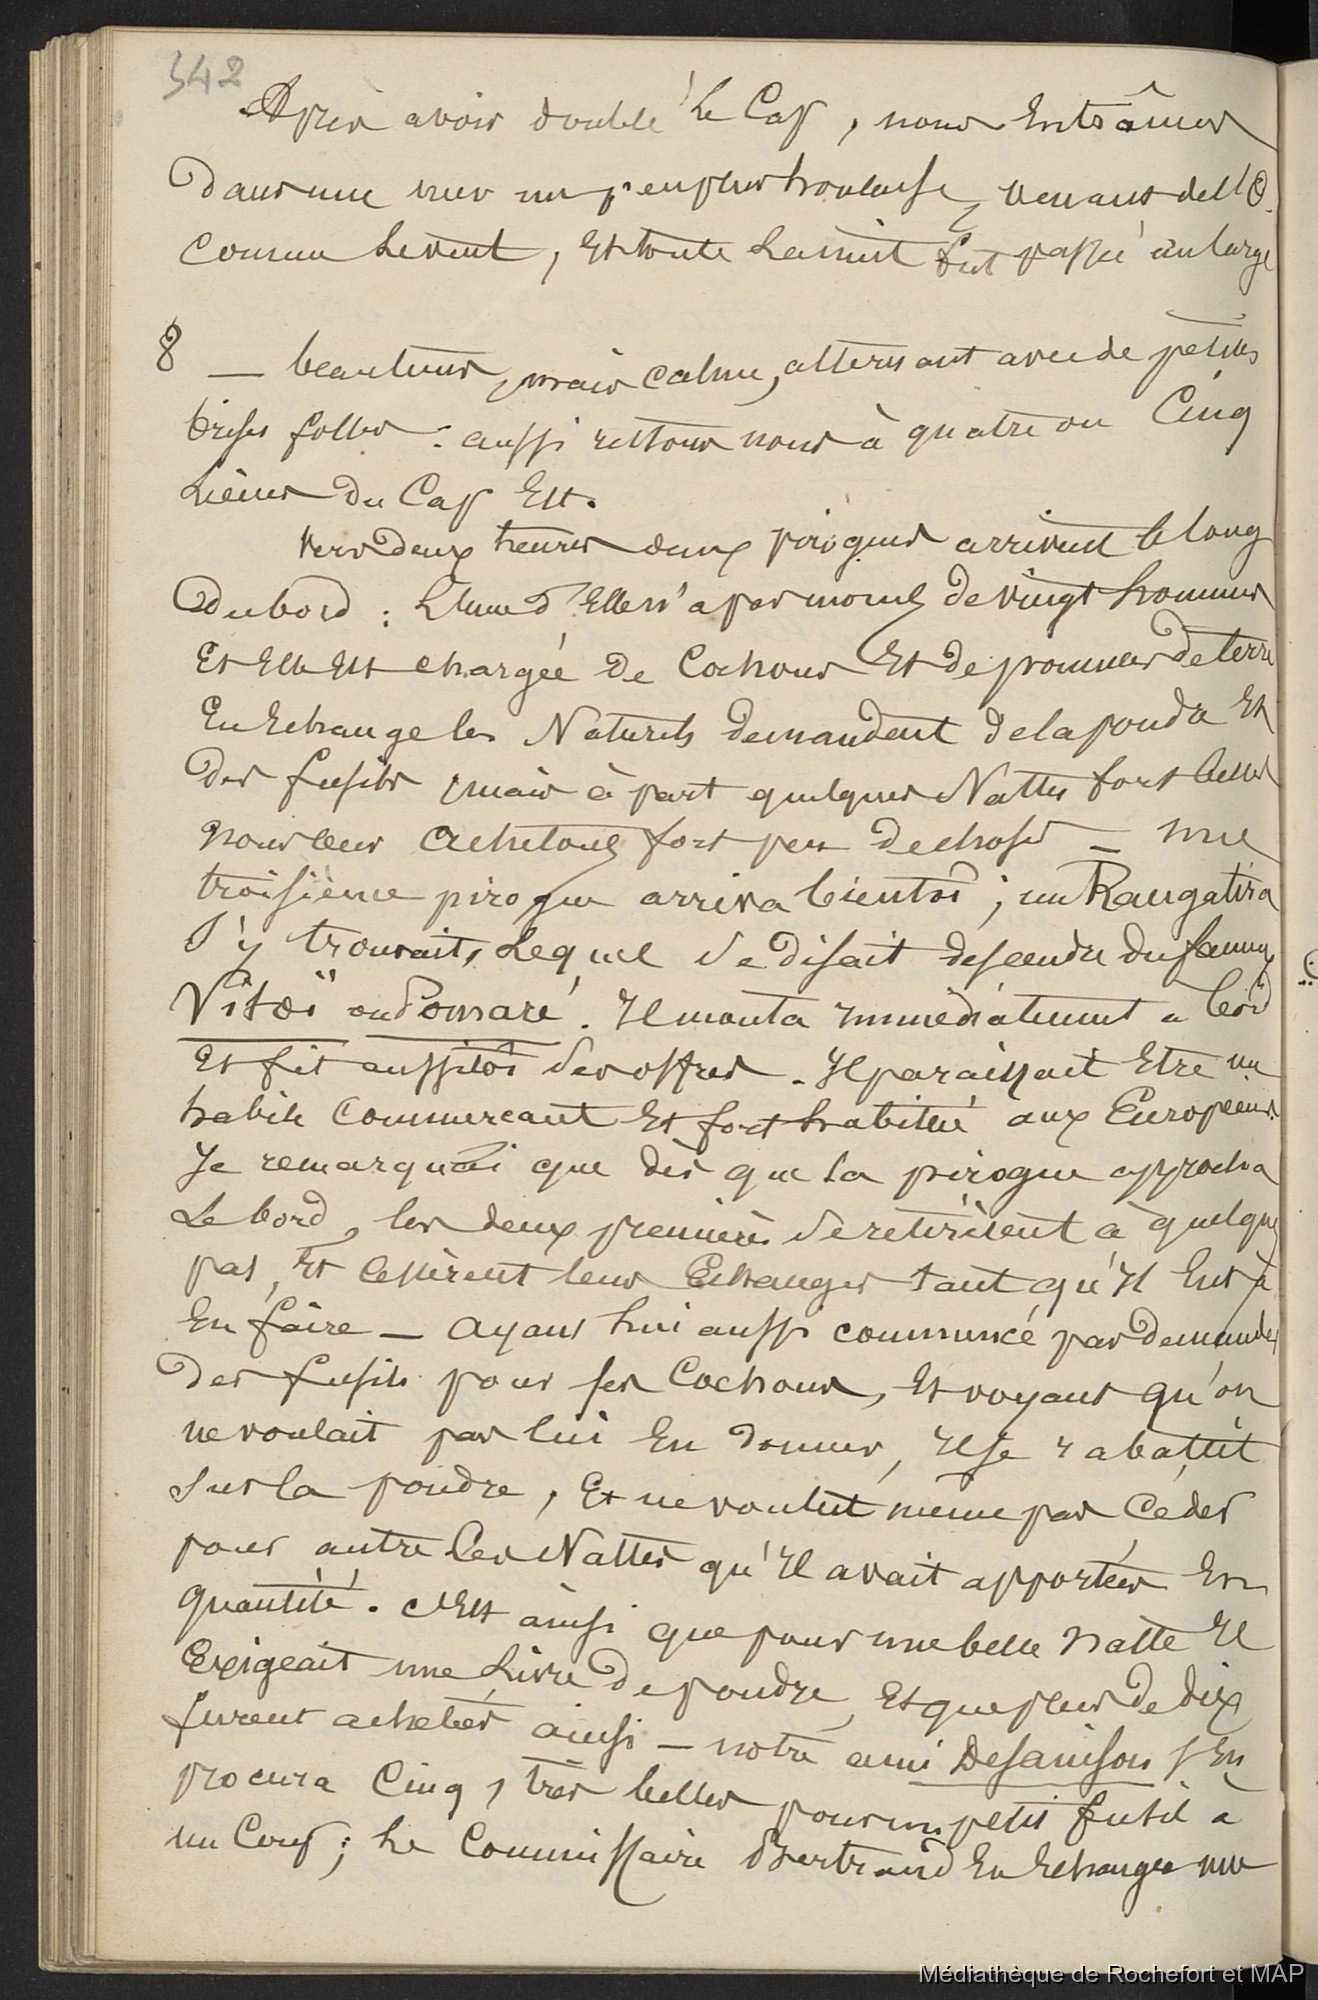 342
Après avoir doublé le Cap, nous entrâmes
dans une mer un peu plus houleuse, venant de l'O.
comme le vent, et toute la nuit fut passée au large
8 — beau tems, mais calme, alternant avec de petites
brises folles : aussi restons nous à quatre ou Cinq
Lieues du Cap Est.
Vers deux heures deux pirogues arrivent le long
du bord : L'une d'Elles n'a pas moins de vingt hommes
Et Elle Est chargée de Cochons Et de pommes de terre
En Echange les Naturels demandent de la poudre Et
des fusils, mais à part quelques Nattes fort belles
nous leur achetons fort peu de chose — une
troisième pirogue arriva bientôt ; un Rangatira
s'y trouvait, Lequel se disait descendre du fameux
Vitoï ou Pomaré. Il monta immédiatement à bord
Et fit aussitôt ses offres. Il paraissait Etre un
habile Commerçant Et fort habitué aux Européens.
Je remarquai que dès que sa pirogue approcha
Le bord, les deux premières se retirèrent à quelques
pas, Et Cessèrent leurs Echanges tant qu'Il Eut à
En faire — ayant lui aussi commencé par demander
des fusils pour ses Cochons, Et voyant qu'on
ne voulait pas lui En donner, Il se rabattit
sur la poudre, Et ne voulut même pas Céder
pour autre les Nattes qu'Il avait apportées En
quantité. C'Est ainsi que pour une belle natte Il
Exigeait une Livre de poudre, Et que plus de dix
furent achetées ainsi — notre ami Desanison s'En
procura Cinq, très belles pour un petit fusil à
un Coup ; Le Commissaire Bertrand En Echangea une
Médiathèque de Rochefort et MAP